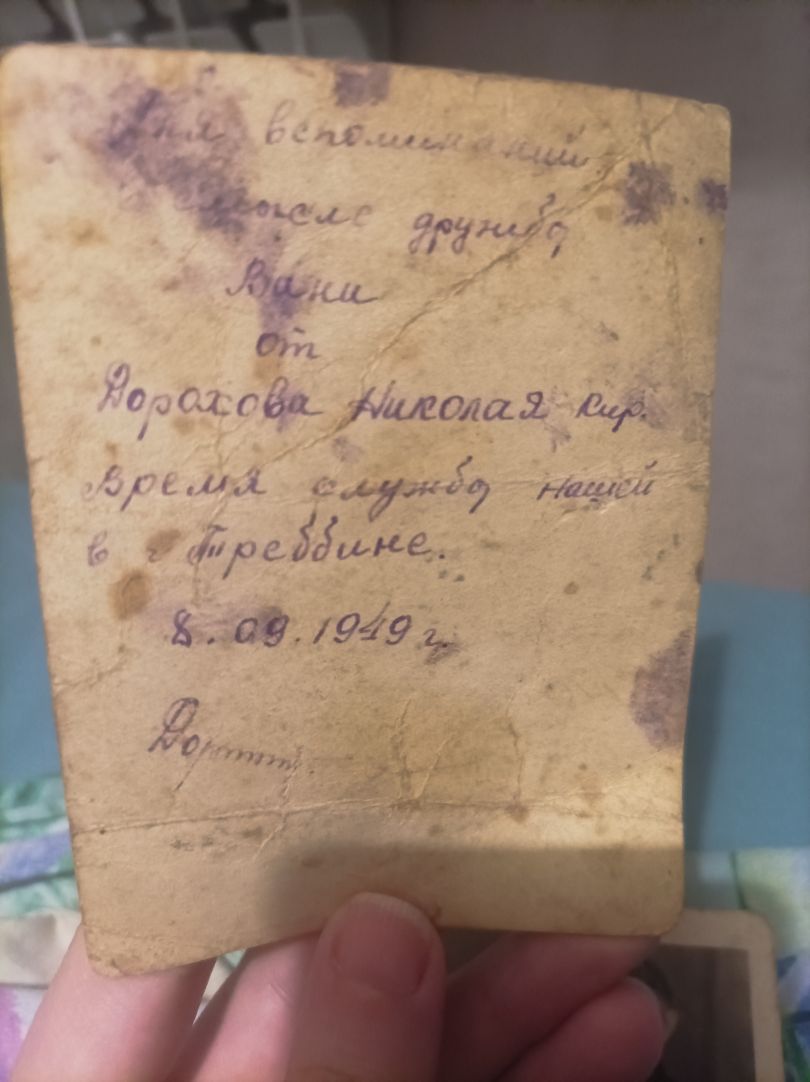 Для вспоминаний
мысле дружбы
Вани
от
Дорохова Николая Кир.
Время службы нашей
в г Треббине.
8.09.1949 г.